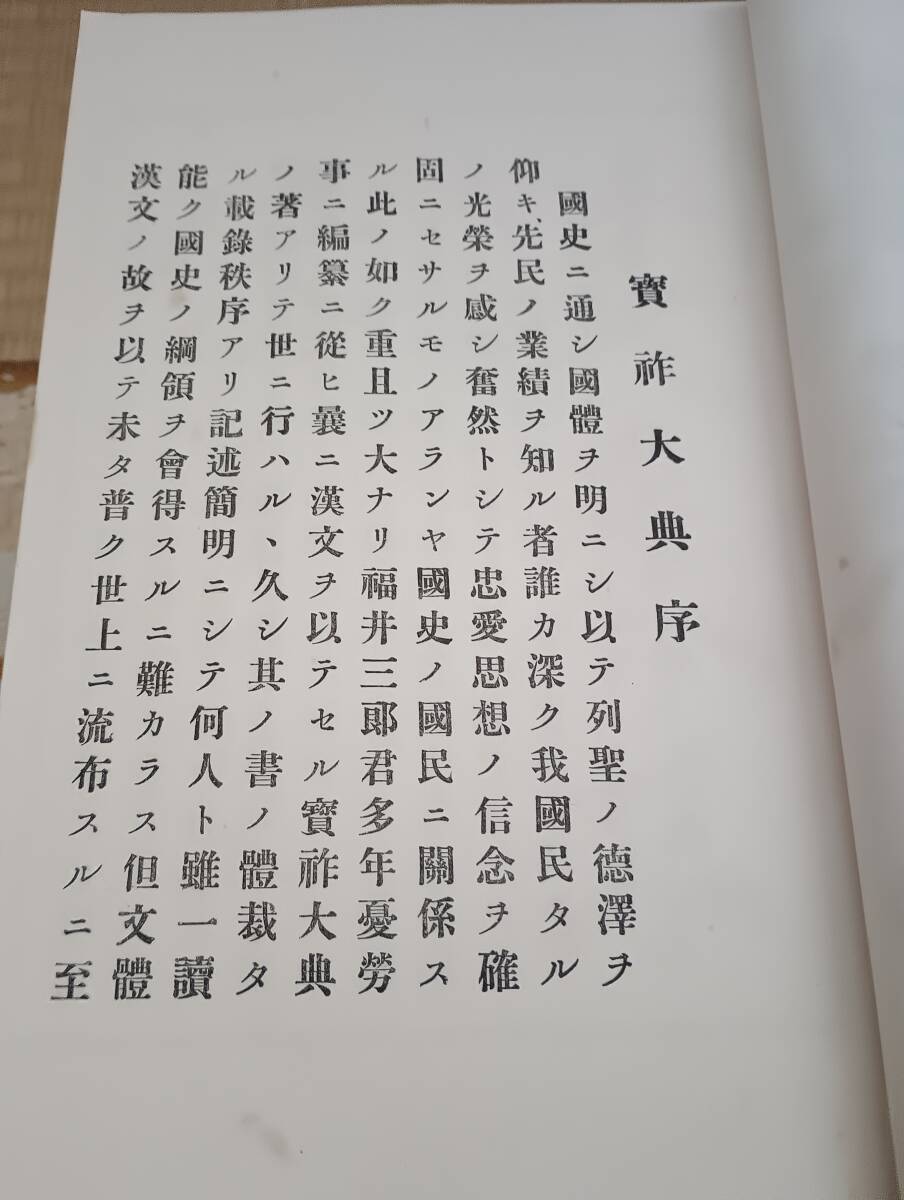 寶祚大典序
國史ニ通シ國體ヲ明ニシ以テ列聖ノ德澤ヲ
仰キ、先民ノ業績ヲ知ル者誰カ深ク我國民タル
ノ光榮ヲ感シ奮然トシテ忠愛思想ノ信念ヲ確
固ニセサルモノアランヤ國史ノ國民ニ關係ス
ル此ノ如ク重且ツ大ナリ福井三郎君多年憂勞
事ニ編纂ニ從ヒ曩ニ漢文ヲ以テセル寶祚大典
ノ著アリテ世ニ行ハル、久シ其ノ書ノ體裁タ
ル載錄秩序アリ記述簡明ニシテ何人ト雖一讀
能ク國史ノ綱領ヲ會得スルニ難カラス但文體
漢文ノ故ヲ以テ未タ普ク世上ニ流布スルニ至